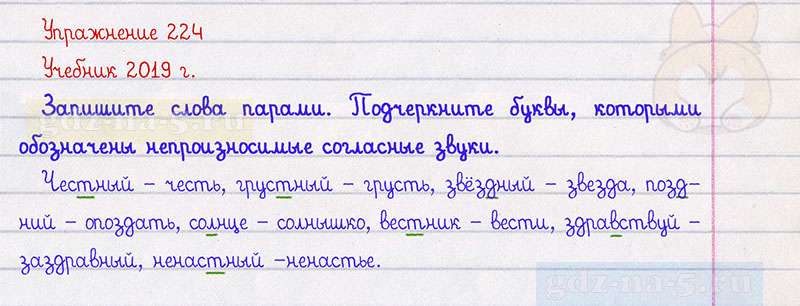 Упражнение 224
Учебник 2019 г.
Запишите слова парами. Подчеркните буквы, которыми
обозначены непроизносимые согласные звуки.
Честный – честь, грустный – грусть, звёздный – звезда, позд-
ний – опоздать, солнце – солнышко, вестник – вести, здравствуй –
заздравный, ненастный –ненастье.
gdz-na-5.ru
gdz-na-5.ru